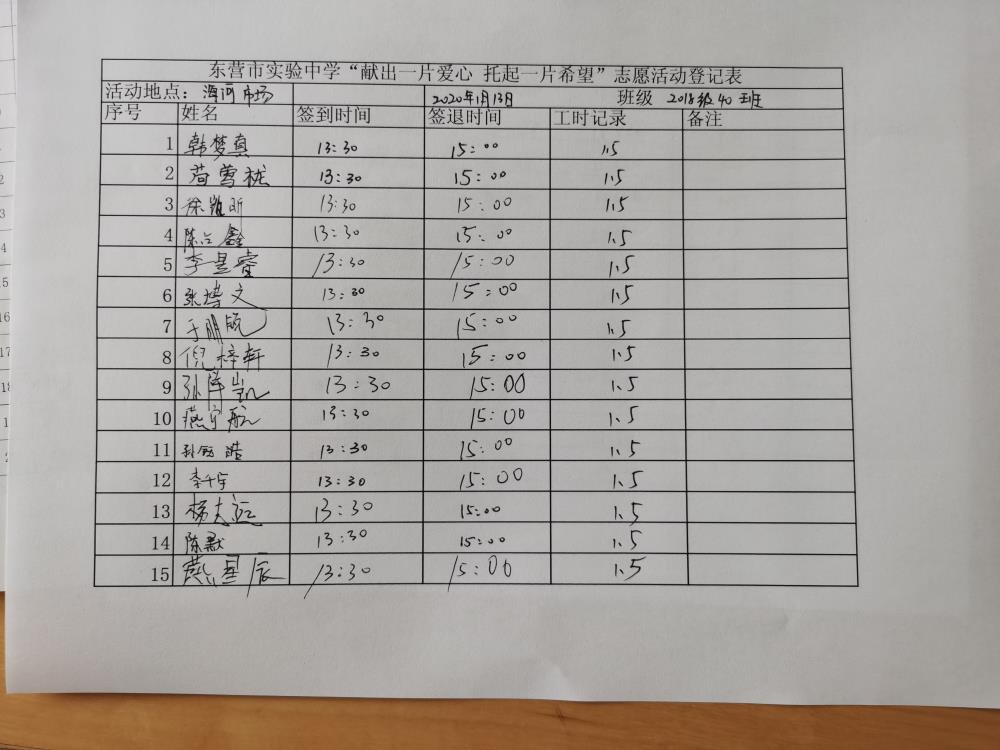 东营市实验中学“献出一片爱心 托起一片希望”志愿活动登记表
活动地点：海河市场 2020年1月13日 班级 2018级40班
序号 姓名 签到时间 签退时间 工时记录 备注
1 韩梦真 13:30 15:00 1.5
2 苟雪栊 13:30 15:00 1.5
3 徐 昕 13:30 15:00 1.5
4 陈 鑫 13:30 15:00 1.5
5 李昱睿 13:30 15:00 1.5
6 张博文 13:30 15:00 1.5
7 于鹏 13:30 15:00 1.5
8 倪梓轩 13:30 15:00 1.5
9 孙 凯 13:30 15:00 1.5
10 燕宇航 13:30 15:00 1.5
11 浩 13:30 15:00 1.5
12 李千宇 13:30 15:00 1.5
13 杨大 13:30 15:00 1.5
14 陈默 13:30 15:00 1.5
15 燕星辰 13:30 15:00 1.5